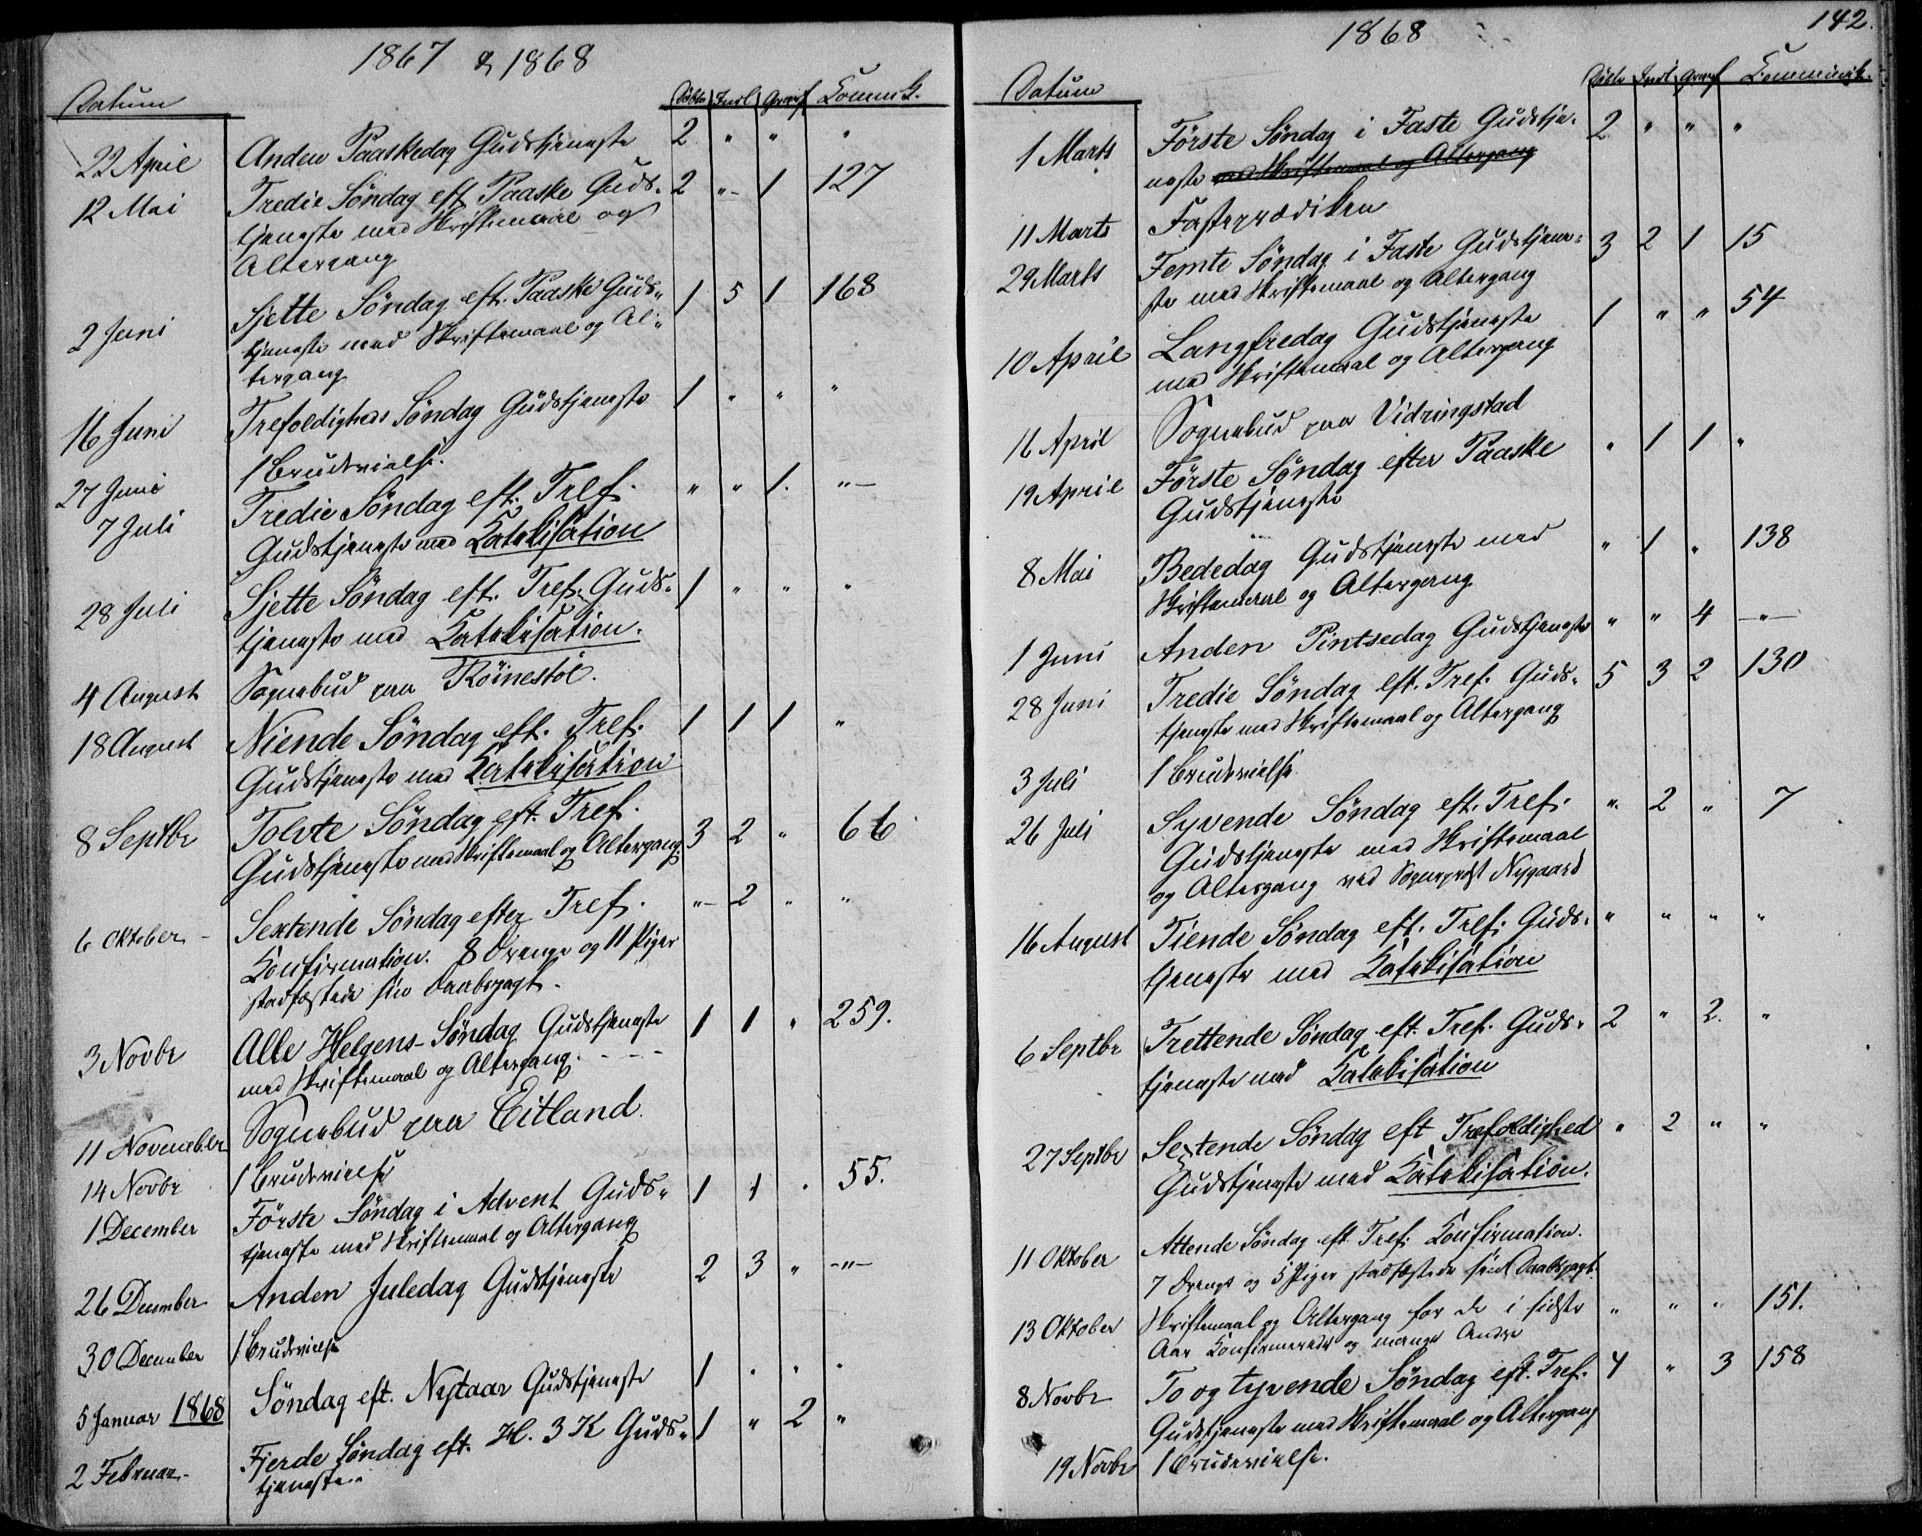 1867 & 1868
Datum Døbte Indl Grav Kommk.
22 April Anden Paaskedag Gudstjeneste 2 " " "
12 Mai Tredie Søndag eft Paaske Guds- 2 " 1 127
tjeneste med Skriftemaal og
Altergang
2 Juni Sjette Søndag eft. Paaske Guds- 1 5 1 168
tjeneste med Skriftemaal og Al-
tergang
16 Juni Trefoldigheds Søndag Gudstjeneste 1 " " "
27 Juni 1 Brudevielse.
7 Juli Tredie Søndag eft. Tref. " " 1. "
Gudstjeneste med Katekisation
28 Juli Sjette Søndag eft. Tref. Guds- 1 " " "
tjeneste med Katekisation.
4 August Sognebud paa Röinestöl.
18 August Niende Søndag eft. Tref. 1 1 1 "
Gudstjeneste med Katekisation
8 Septbr Tolvte Søndag eft. Tref. 3 2 " 66
Gudstjeneste med Skriftemaal og Altergang.
6 Oktober Sextende Søndag efter Tref. " 2 " "
Konfirmation. 8 Drenge og 11 Piger
stadfæstede sin Daabspagt.
3 Novbr Alle Helgens-Søndag Gudstjeneste 1 1 " 259.
med Skriftemaal og Altergang.
11 November Sognebud paa Eitland.
14 Novbr 1 Brudevielse
1 December Förste Søndag i Advent Guds- 1 1 . 55.
tjeneste med Skriftemaal og Altergang
26 December Anden Juledag Gudstjeneste 2 3 " "
30 December 1 Brudevielse
5 Januar 1868 Søndag eft. Nytaar Gudstjeneste 1 . . .
2 Februar Fjerde Søndag eft. H. 3 K Guds- 1 " 2 "
tjeneste
1868 142.
Datum Døbte Indl Grav Kommunik.
1 Marts Förste Søndag i Faste Gudstje- 2 " " "
neste med Skriftemaal og Altergang
11 Marts Fasteprædiken
29 Marts Femte Søndag i Faste Gudstjene- 3 2 1 15
ste med Skriftemaal og Altergang
10 April Langfredag Gudstjeneste 1 " " 54
med Skriftemaal og Altergang
16 April Sognebud paa Vidringstad
19 April Förste Søndag efter Paaske " 1 1 "
Gudstjeneste
8 Mai Bededag Gudstjeneste med " 1 " 138
Skriftemaal og Altergang
1 Juni Anden Pintsedag Gudstjeneste " " 4 "
28 Juni Tredie Søndag eft. Tref. Guds- 5 3 2 130
tjeneste med Skriftemaal og Altergang
3 Juli 1 Brudevielse
26 Juli Syvende Søndag eft. Tref. " 2 " 7
Gudstjeneste med Skriftemaal
og Altergang ved Sogneprest Nygaard
16 August Tiende Søndag eft. Tref. Guds- " " " "
tjeneste med Katekisation
6 Septbr Trettende Søndag eft. Tref. Guds- 2 " 2. "
tjeneste med Katekisation
27 Septbr Sextende Søndag eft Trefoldighed " 2 " "
Gudstjeneste med Katekisation.
11 Oktober Attende Søndag eft. Tref. Konfirmation.
7 Drenge og 5 Piger stadfæstede sin Daabspagt.
13 Oktober Skriftemaal og Altergang for de i sidste " " " 151.
Aar Konfirmerede og mange Andre
8 Novbr To og tyvende Søndag eft. Tref. 4 " 3 158
Gudstjeneste med Skriftemaal og Altergang
19 Novbr 1 Brudevielse.